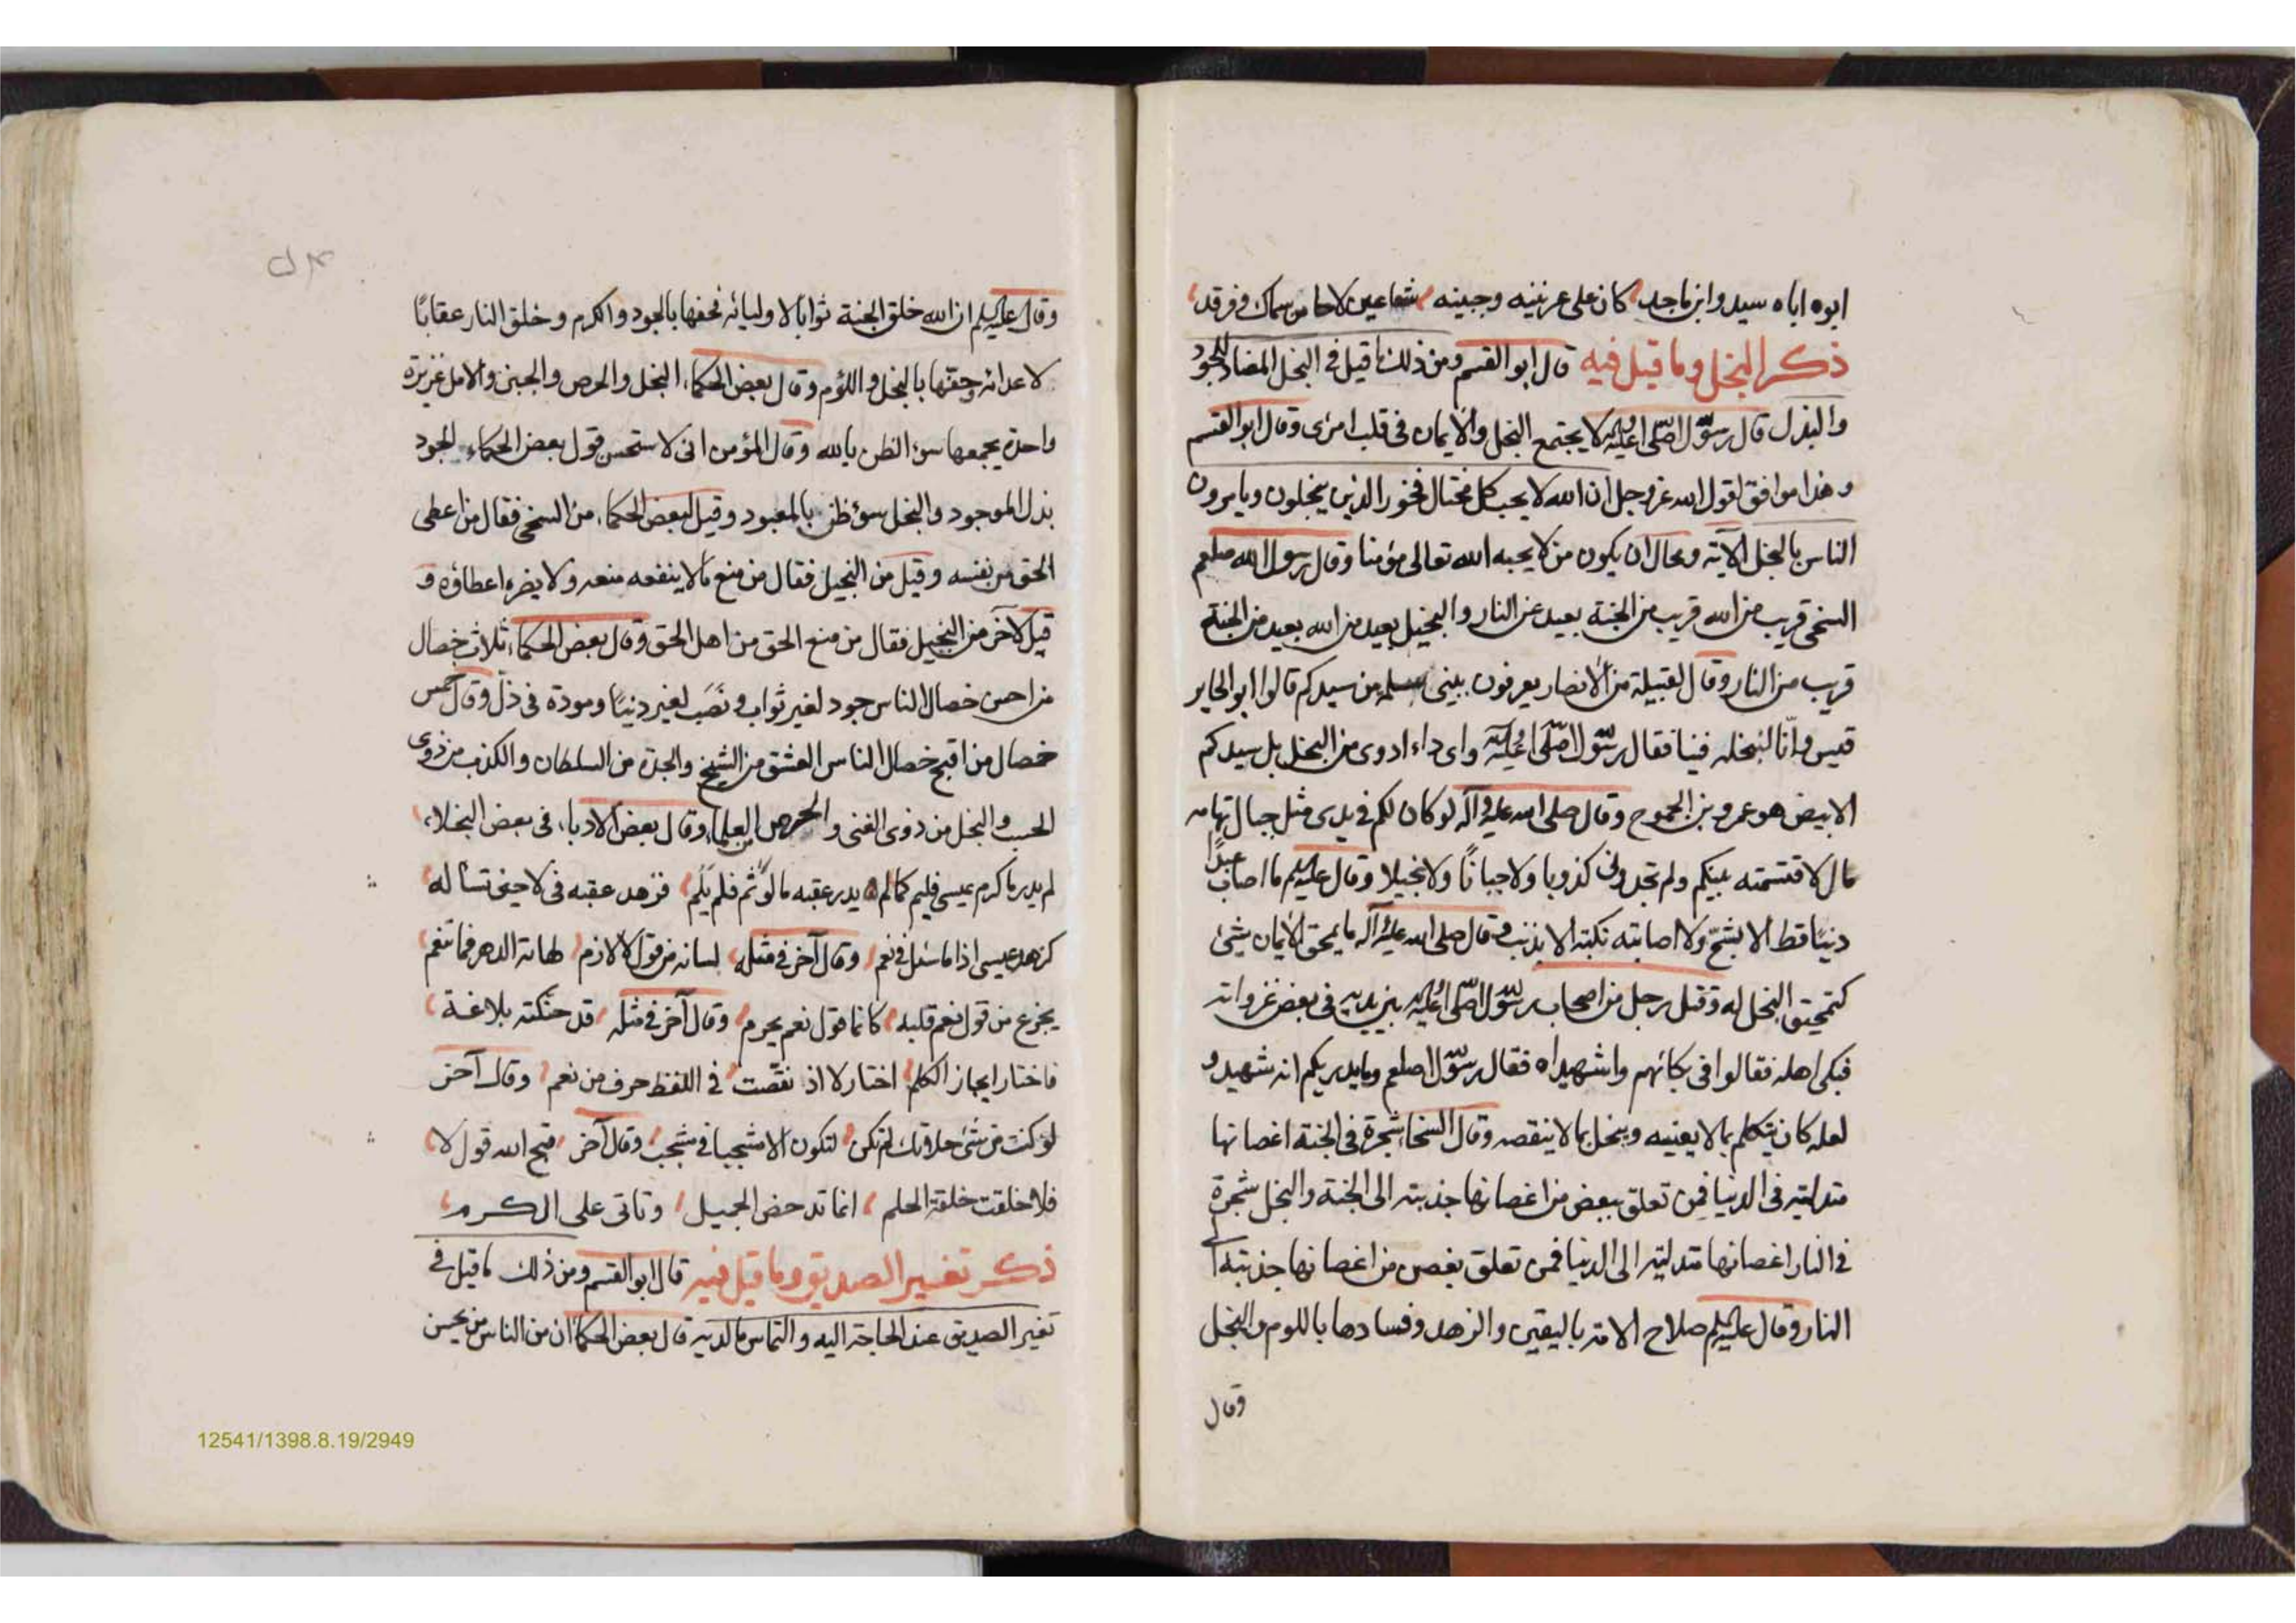 ابوه اباه سيد وابن ماجد كان على عرنينه وجبينه شعاعين لاحا من سماك وفرقد
ذكر البخل وما قيل فيه قال ابو القسم ومن ذلك ما قيل فى البخل المضاد للجود
والبذل قال رسول الله صلى الله عليه وآله لا يجتمع البخل والايمان فى قلب امرئ وقال ابو القسم
وهذا موافق لقول الله عز وجل ان الله لا يحب كل مختال فخور الذين يبخلون ويامرون
الناس بالبخل الآية ومحال ان يكون من لا يحبه الله تعالى مؤمنا وقال رسول الله صلعم
السخى قريب من الله قريب من الجنة بعيد عن النار والبخيل بعيد من الله بعيد من الجنة
قريب من النار وقال لقبيلة من الانصار يعرفون ببنى سلمه من سيدكم قالوا ابو الجابر
قيس وانّا لنبخله فينا فقال رسول الله صلى الله عليه وآله واى داء ادوى من البخل بل سيدكم
الابيض هو عمرو بن الجموح وقال صلى الله عليه وآله لو كان لكم فى يدى مثل جبال تهامه
مال لاقتسمته بينكم ولم تجدونى كذوبا ولا جبانًا ولا بخيلا وقال عليه السلم ما اصاب عبدًا
دنيًا قط الا بشحّ ولا اصابته نكبته الا بذنب وقال صلى الله عليه وآله ما يمحق الايمان شئ
كتمحيق البخل له وقتل رجل من اصحاب رسول الله صلى الله عليه وآله بين يديه فى بعض غزواته
فبكى اهله فقالوا فى بكائهم واشهيداه فقال رسول الله صلعم وما يدريكم انه شهيد و
لعله كان يتكلم بما لا يعنيه ويبخل بما لا ينقصه وقال السخاء شجرة فى الجنة اغصانها
متدليه فى الدنيا فمن تعلق ببعض من اغصانها جذبته الى الجنة والبخل شجرة
فى النار اغصانها متدليه الى الدنيا فمن تعلق بغصن من اغصانها جذبته الى
النار وقال عليه السلم صلاح الامة باليقين والزهد وفسادها باللوم والبخل
وقال
وقال عليه السلم ان الله خلق الجنة ثوابا لاوليائه فحفها بالجود والكرم وخلق النار عقابًا
لاعدائه وحفها بالبخل واللؤم وقال بعض الحكماء البخل والحرص والجبن والامل غريزة
واحدة يجمعها سوء الظن بالله وقال المؤمن انى لاستحسن قول بعض الحكماء الجود
بذل الموجود والبخل سوء ظن بالمعبود وقيل لبعض الحكماء من السخى فقال من اعطى
الحق من نفسه وقيل من البخيل فقال من منع ما لا ينفعه منعه ولا يضره اعطاؤه و
قيل لآخر من البخيل فقال من منع الحق من اهل الحق وقال بعض الحكماء ثلاث خصال
من احسن خصال الناس جود لغير ثواب ونَصَب لغير دنيًا ومودة فى ذلّ وقال خمس
خصال من اقبح خصال الناس العشق من الشيخ والحدة من السلطان والكذب من ذوى
الحسب والبخل من ذوى الغنى والحرص من العلماء وقال بعض الادباء فى بعض البخلاء
لم يدر ما كرم عيسى فليم كما لم يدر عقبه ما لؤم فلم يَلُم فزهد عقبه فى لا حين تسأله
كزهد عيسى اذا ما سئل فى نعم وقال آخر فى مثله لسانه من قول لا لازم لهاته الدهر فما تنغم
يجزع من قول نعم قلبه كانما قول نعم يحرم وقال آخر فى مثله قد حنكته بلاغة
فاختار ايجاز الكلم اختار لا اذ نقصت فى اللفظ حرف من نعم وقال آخر
لو كنت من شئ خلافك لم تكن لتكون الا مشجبا فى مشجب وقال آخر قبح الله قول لا
فلا خلقت خلقة الحلم انما تدحض الجميل وتاتى على الكرم
ذكر تغير الصديق وما قيل فيه قال ابو القسم ومن ذلك ما قيل فى
تغير الصديق عند الحاجة اليه والتماس ما لديه قال بعض الحكماء ان من الناس من يحسن
12541/1398.8.19/2949